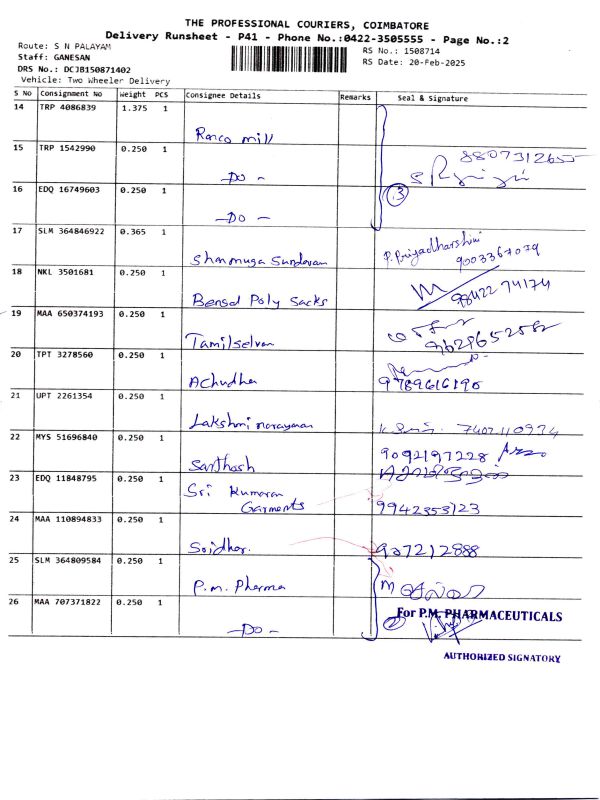 THE PROFESSIONAL COURIERS, COIMBATORE
Delivery Runsheet - P41 - Phone No.:0422-3505555 - Page No.:2
Route: S N PALAYAM
RS No.: 1508714
Staff: GANESAN
RS Date: 20-Feb-2025
DRS No.: DCJB150871402
Vehicle: Two Wheeler Delivery
S No Consignment No Weight PCS Consignee Details Remarks Seal & Signature
14 TRP 4086839 1.375 1
Ranco mill
15 TRP 1542990 0.250 1
-Do-
16 EDQ 16749603 0.250 1 3
-Do-
17 SLM 364846922 0.365 1
Shanmuga Sundaram P. Priyadharshini
9003367079
18 NKL 3501681 0.250 1
Bensd Poly Sacks 98422 74174
19 MAA 650374193 0.250 1
Tamilselvan 9629652582
20 TPT 3278560 0.250 1
Achudha 9789616196
21 UPT 2261354 0.250 1
Lakshmi narayanan
22 MYS 51696840 0.250 1
Santhosh 9092197228
23 EDQ 11848795 0.250 1
Sri Kumaran
Garments 9942353123
24 MAA 110894833 0.250 1
Sridhar. 907212888
25 SLM 364809584 0.250 1
P.m. Pharma
For P.M. PHARMACEUTICALS
26 MAA 707371822 0.250 1 2
-Do-
AUTHORIZED SIGNATORY